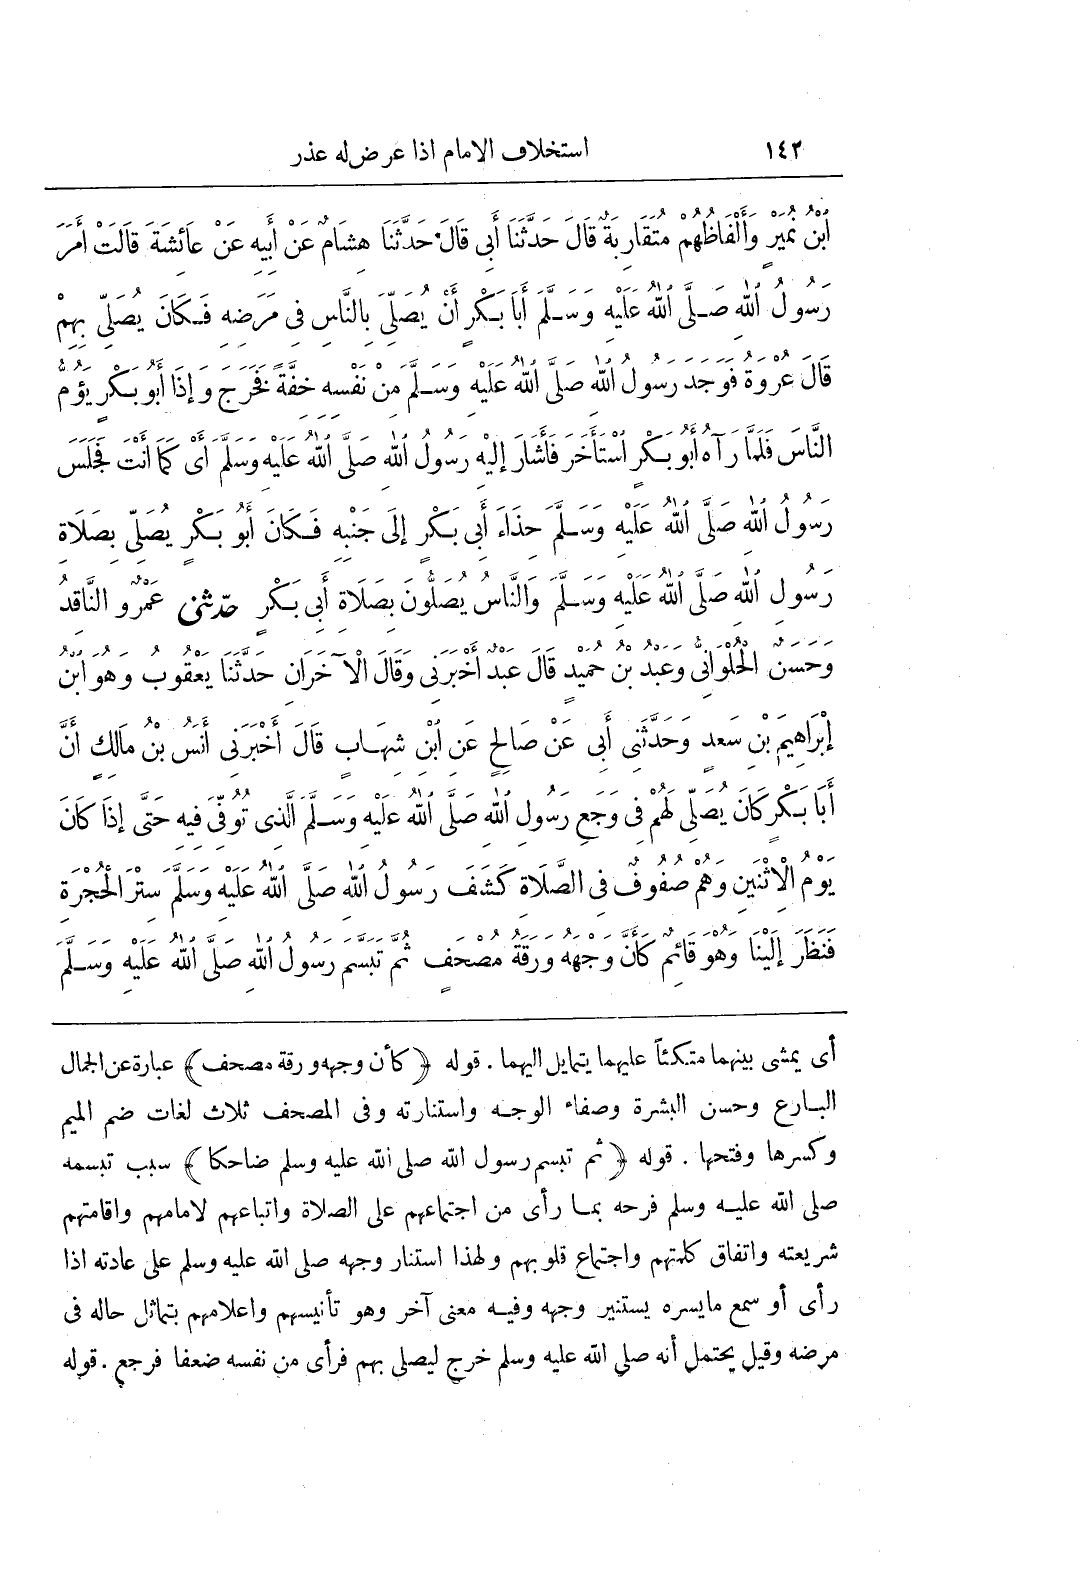 ١٤٢ استخلاف الامام اذا عرض له عذر
ابْنُ نُمَيْرٍ وَأَلْفَاظُهُمْ مُتَقَارِبَةٌ قَالَ حَدَّثَنَا أَبِى قَالَ حَدَّثَنَا هِشَامٌ عَنْ أَبِيهِ عَنْ عَائِشَةَ قَالَتْ أَمَرَ
رَسُولُ اللهِ صَلَّى اللهُ عَلَيْهِ وَسَلَّمَ أَبَا بَكْرٍ أَنْ يُصَلِّىَ بِالنَّاسِ فِى مَرَضِهِ فَكَانَ يُصَلِّى بِهِمْ
قَالَ عُرْوَةُ فَوَجَدَ رَسُولُ اللهِ صَلَّى اللهُ عَلَيْهِ وَسَلَّمَ مِنْ نَفْسِهِ خِفَّةً فَخَرَجَ وَإِذَا أَبُو بَكْرٍ يَؤُمُّ
النَّاسَ فَلَمَّا رَآهُ أَبُو بَكْرٍ اسْتَأْخَرَ فَأَشَارَ إِلَيْهِ رَسُولُ اللهِ صَلَّى اللهُ عَلَيْهِ وَسَلَّمَ أَىْ كَمَا أَنْتَ فَجَلَسَ
رَسُولُ اللهِ صَلَّى اللهُ عَلَيْهِ وَسَلَّمَ حِذَاءَ أَبِى بَكْرٍ إِلَى جَنْبِهِ فَكَانَ أَبُو بَكْرٍ يُصَلِّى بِصَلَاةِ
رَسُولِ اللهِ صَلَّى اللهُ عَلَيْهِ وَسَلَّمَ وَالنَّاسُ يُصَلُّونَ بِصَلَاةِ أَبِى بَكْرٍ حَدَّثَنِى عَمْرٌو النَّاقِدُ
وَحَسَنٌ الْحُلْوَانِىُّ وَعَبْدُ بْنُ حُمَيْدٍ قَالَ عَبْدٌ أَخْبَرَنِى وَقَالَ الْآخَرَانِ حَدَّثَنَا يَعْقُوبُ وَهُوَ ابْنُ
إِبْرَاهِيمَ بْنِ سَعْدٍ وَحَدَّثَنِى أَبِى عَنْ صَالِحٍ عَنِ ابْنِ شِهَابٍ قَالَ أَخْبَرَنِى أَنَسُ بْنُ مَالِكٍ أَنَّ
أَبَا بَكْرٍ كَانَ يُصَلِّى لَهُمْ فِى وَجَعِ رَسُولِ اللهِ صَلَّى اللهُ عَلَيْهِ وَسَلَّمَ الَّذِى تُوُفِّىَ فِيهِ حَتَّى إِذَا كَانَ
يَوْمُ الْاِثْنَيْنِ وَهُمْ صُفُوفٌ فِى الصَّلَاةِ كَشَفَ رَسُولُ اللهِ صَلَّى اللهُ عَلَيْهِ وَسَلَّمَ سِتْرَ الْحُجْرَةِ
فَنَظَرَ إِلَيْنَا وَهُوَ قَائِمٌ كَأَنَّ وَجْهَهُ وَرَقَةُ مُصْحَفٍ ثُمَّ تَبَسَّمَ رَسُولُ اللهِ صَلَّى اللهُ عَلَيْهِ وَسَلَّمَ
أى يمشى بينهما متكئاً عليهما يتمايل اليهما . قوله ﴿ كأن وجهه ورقة مصحف ﴾ عبارة عن الجمال
البارع وحسن البشرة وصفاء الوجه واستنارته وفى المصحف ثلاث لغات ضم الميم
وكسرها وفتحها . قوله ﴿ ثم تبسم رسول الله صلى الله عليه وسلم ضاحكا ﴾ سبب تبسمه
صلى الله عليه وسلم فرحه بما رأى من اجتماعهم على الصلاة واتباعهم لامامهم واقامتهم
شريعته واتفاق كلمتهم واجتماع قلوبهم ولهذا استنار وجهه صلى الله عليه وسلم على عادته اذا
رأى أو سمع مايسره يستنير وجهه وفيه معنى آخر وهو تأنيسهم واعلامهم بتماثل حاله فى
مرضه وقيل يحتمل أنه صلى الله عليه وسلم خرج ليصلى بهم فرأى من نفسه ضعفا فرجع . قوله